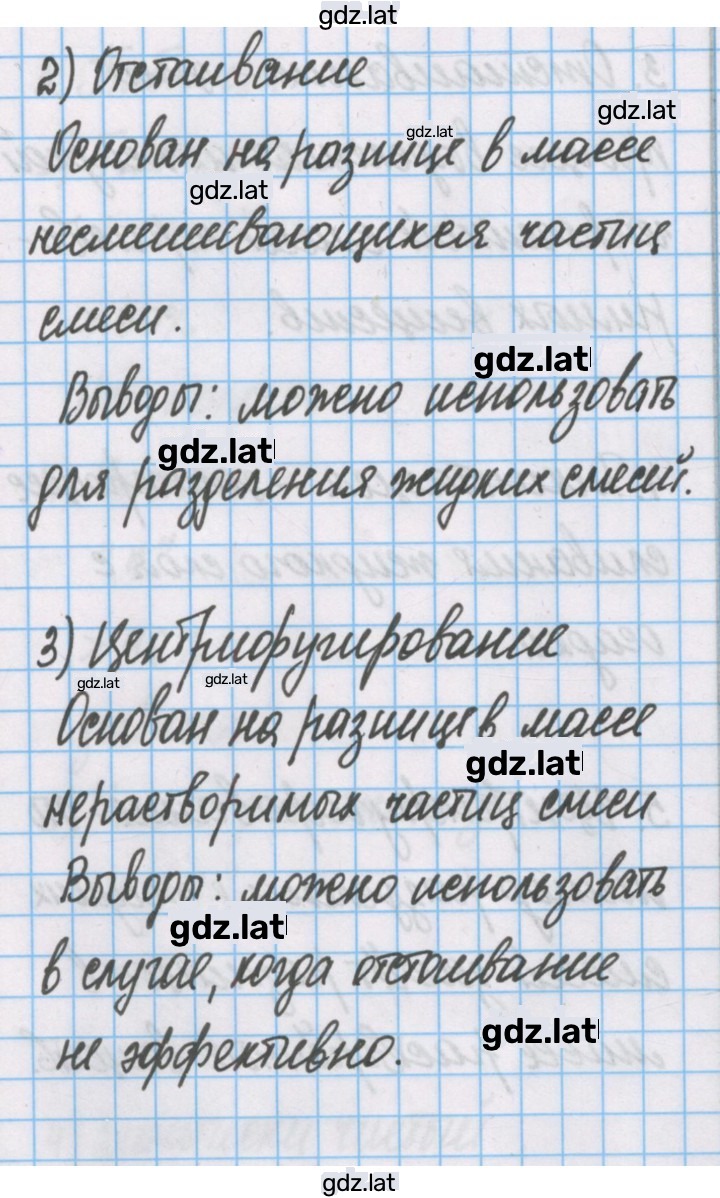 gdz.lat
2) Отстаивание
gdz.lat
Основан на разнице в массе
gdz.lat
gdz.lat
несмешивающихся частиц
смеси.
gdz.lat
Выводы: можно использовать
gdz.lat
для разделения жидких смесей.
3) Центрифугирование
gdz.lat gdz.lat
Основан на разнице в массе
gdz.lat
нерастворимых частиц смеси
Выводы: можно использовать
gdz.lat
в случае, когда отстаивание
gdz.lat
не эффективно.
gdz.lat